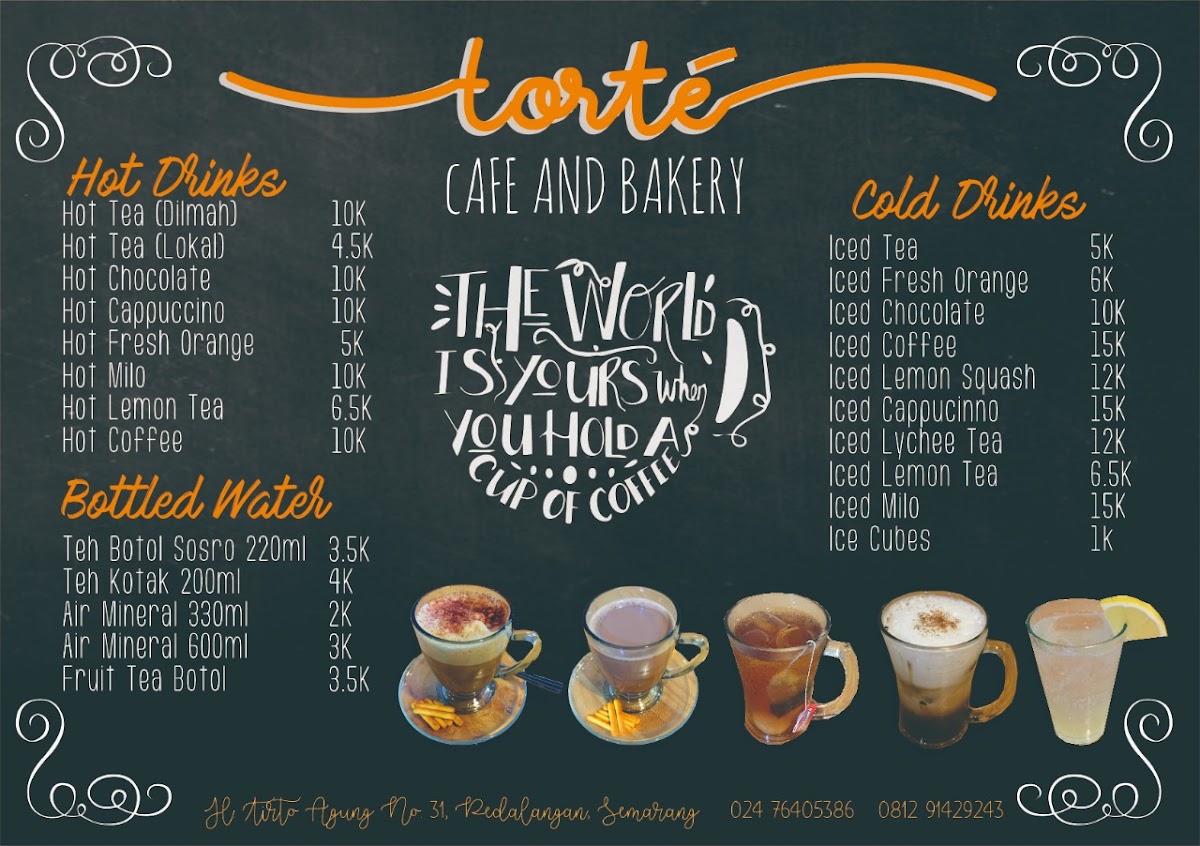 torté
CAFE AND BAKERY
Hot Drinks
Hot Tea (Dilmah) 10K
Hot Tea (Lokal) 4.5K
Hot Chocolate 10K
Hot Cappuccino 10K
Hot Fresh Orange 5K
Hot Milo 10K
Hot Lemon Tea 6.5K
Hot Coffee 10K
Bottled Water
Teh Botol Sosro 220ml 3.5K
Teh Kotak 200ml 4K
Air Mineral 330ml 2K
Air Mineral 600ml 3K
Fruit Tea Botol 3.5K
THE WORLD
IS YOURS when
YOU HOLD A
CUP OF COFFEE
Cold Drinks
Iced Tea 5K
Iced Fresh Orange 6K
Iced Chocolate 10K
Iced Coffee 15K
Iced Lemon Squash 12K
Iced Cappucinno 15K
Iced Lychee Tea 12K
Iced Lemon Tea 6.5K
Iced Milo 15K
Ice Cubes 1k
Jl. Tirto Agung No. 31, Pedalangan, Semarang 024 76405386 0812 91429243